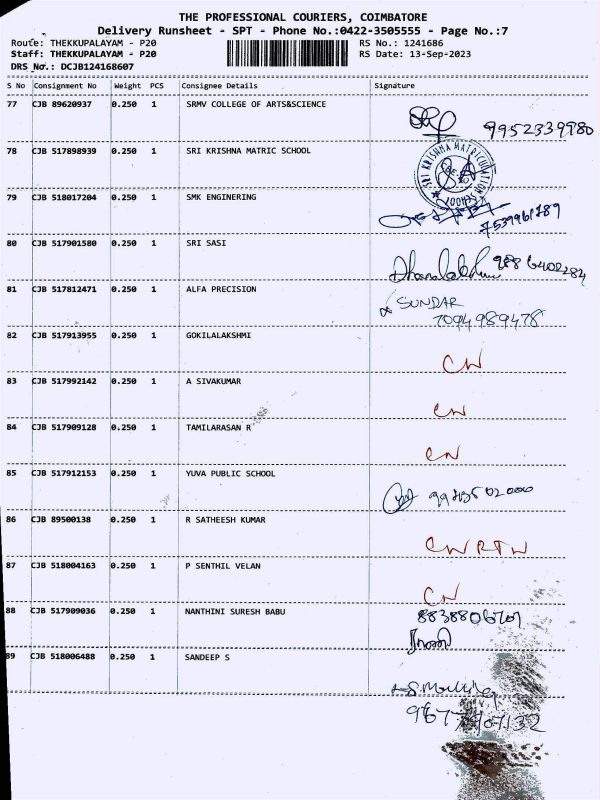 THE PROFESSIONAL COURIERS, COIMBATORE
Delivery Runsheet - SPT - Phone No.:0422-3505555 - Page No.:7
Route: THEKKUPALAYAM - P20 RS No.: 1241686
Staff: THEKKUPALAYAM - P20 RS Date: 13-Sep-2023
DRS No.: DCJB124168607
S No Consignment No Weight PCS Consignee Details Signature
77 CJB 89620937 0.250 1 SRMV COLLEGE OF ARTS&SCIENCE
9952339980
78 CJB 517898939 0.250 1 SRI KRISHNA MATRIC SCHOOL
SRI KRISHNA MATRICULATION SCHOOL
79 CJB 518017204 0.250 1 SMK ENGINERING
7539961789
80 CJB 517901580 0.250 1 SRI SASI
81 CJB 517812471 0.250 1 ALFA PRECISION
SUNDAR
7094989478
82 CJB 517913955 0.250 1 GOKILALAKSHMI
CN
83 CJB 517992142 0.250 1 A SIVAKUMAR
CN
84 CJB 517909128 0.250 1 TAMILARASAN R
CN
85 CJB 517912153 0.250 1 YUVA PUBLIC SCHOOL
86 CJB 89500138 0.250 1 R SATHEESH KUMAR
CN RTN
87 CJB 518004163 0.250 1 P SENTHIL VELAN
CN
88 CJB 517909036 0.250 1 NANTHINI SURESH BABU
89 CJB 518006488 0.250 1 SANDEEP S